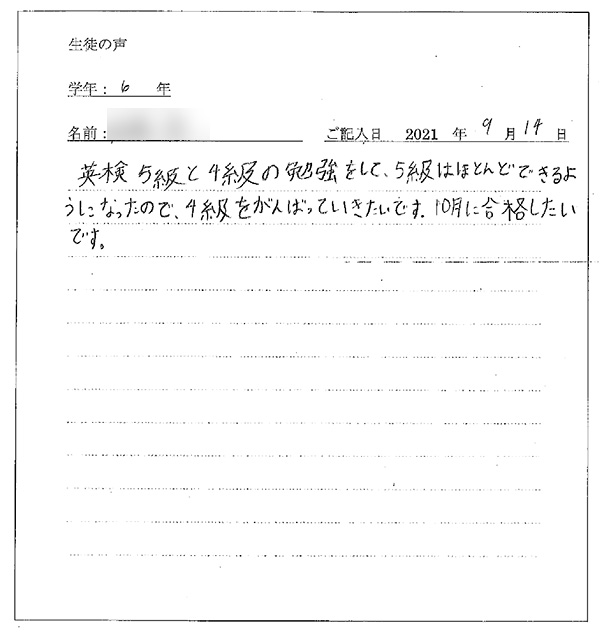 生徒の声
学年：6 年
名前： ご記入日 2021 年 9 月 14 日
英検5級と4級の勉強をして、5級はほとんどできるよ
うになったので、4級をがんばっていきたいです。10月に合格したい
です。